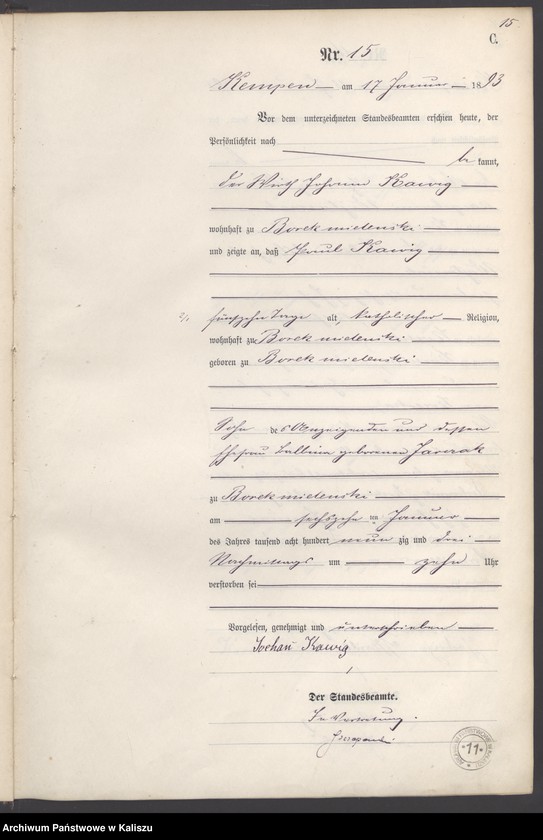 15
C.
Nr. 15
Kempen am 17 Januar 1893
Vor dem unterzeichneten Standesbeamten erschien heute, der
Persönlichkeit nach
be kannt,
der Wirth Johann Kawig
wohnhaft zu Borek mielenski
und zeigte an, daß Paul Kawig
2/1 fünfzehn Tage alt, katholischer Religion,
wohnhaft zu Borek mielenski
geboren zu Borek mielenski
Sohn des Anzeigenden und dessen
Ehefrau Balbina geborenen Jarczak
zu Borek mielenski
am sechszehn ten Januar
des Jahrs tausend acht hundert neun zig und drei
Nachmittags um zehn Uhr
verstorben sei
Vorgelesen, genehmigt und unterschrieben
Johan Kawig
Der Standesbeamte.
In Vertretung.
11
Archiwum Państwowe w Kaliszu